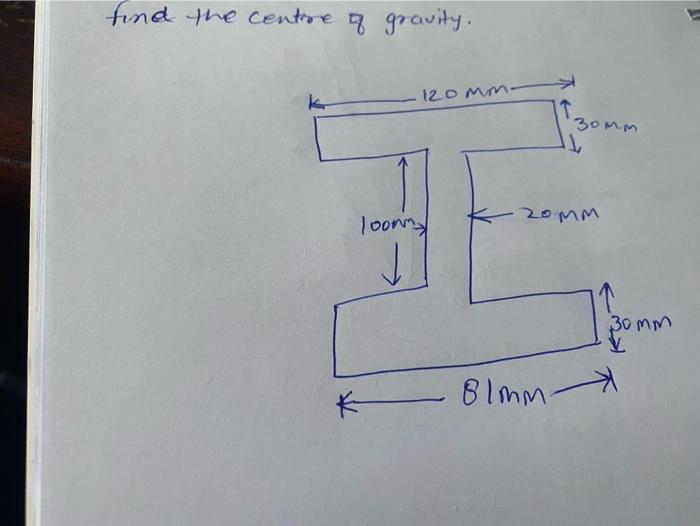 find the centre of gravity.
120 mm
30 mm
100mm
20 mm
30 mm
81mm